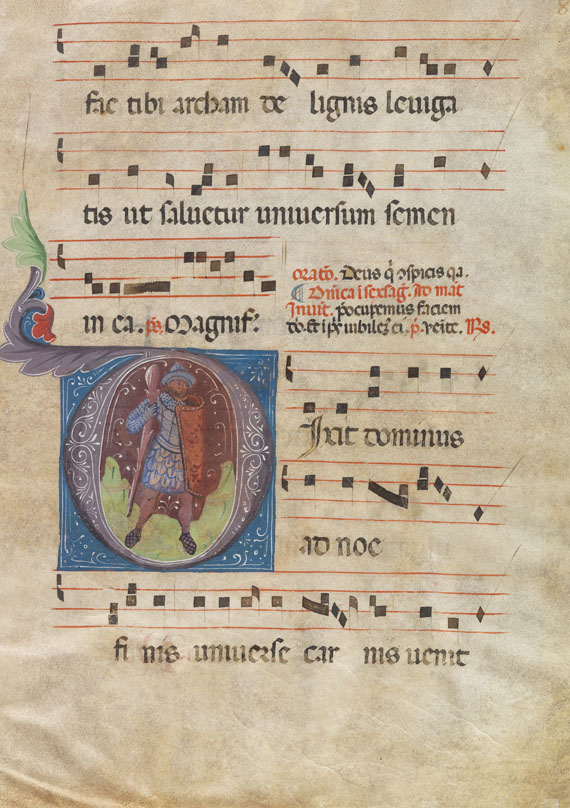 fac tibi archam de lignis leviga
tis ut salvetur universum semen
in ea. ps. Magnif:
orato. Deus q̄ ɔspicis qa.
Dnica i sexag. Ad mat
Invit. pocupemus faciem
do. et i ps iubilez ei. p̄. veite. Rs.
Ixit dominus
ad noe
fi nis universe car nis venit